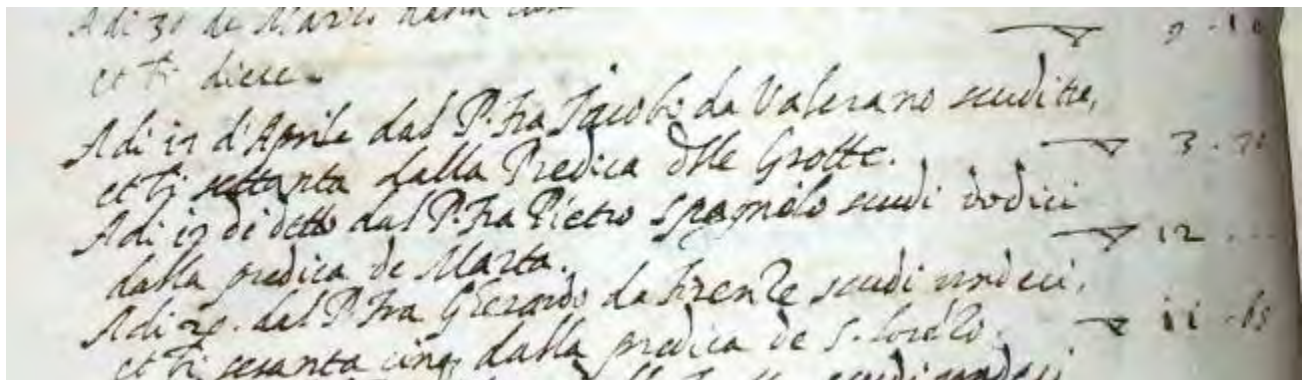 Adi 30 de Marzo dalla
et bi diece 9 - 10
Adi 17 d'Aprile dal P. fra Jacobo da Valerano scudi tre,
et bi settanta dalla Predica dlle Grotte. 3 - 70
Adi 17 di detto dal P. fra Pietro spagnolo scudi dodici
dalla predica de Marta. 12
Adi 29. dal P. fra Gherardo da firenze scudi undeci,
et bi sesanta cinq dalla predica de S. Lorẽzo. 11 - 65
scudi undeci